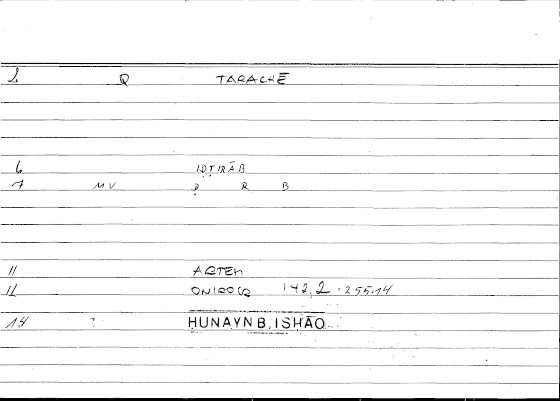 2 Q TARACHĒ
6 IḌṬIRĀB
7 MV Ḍ R B
11 ARTEM
12 ONIROCR 142,2-255.14
14 HUNAYN B. ISḤĀQ